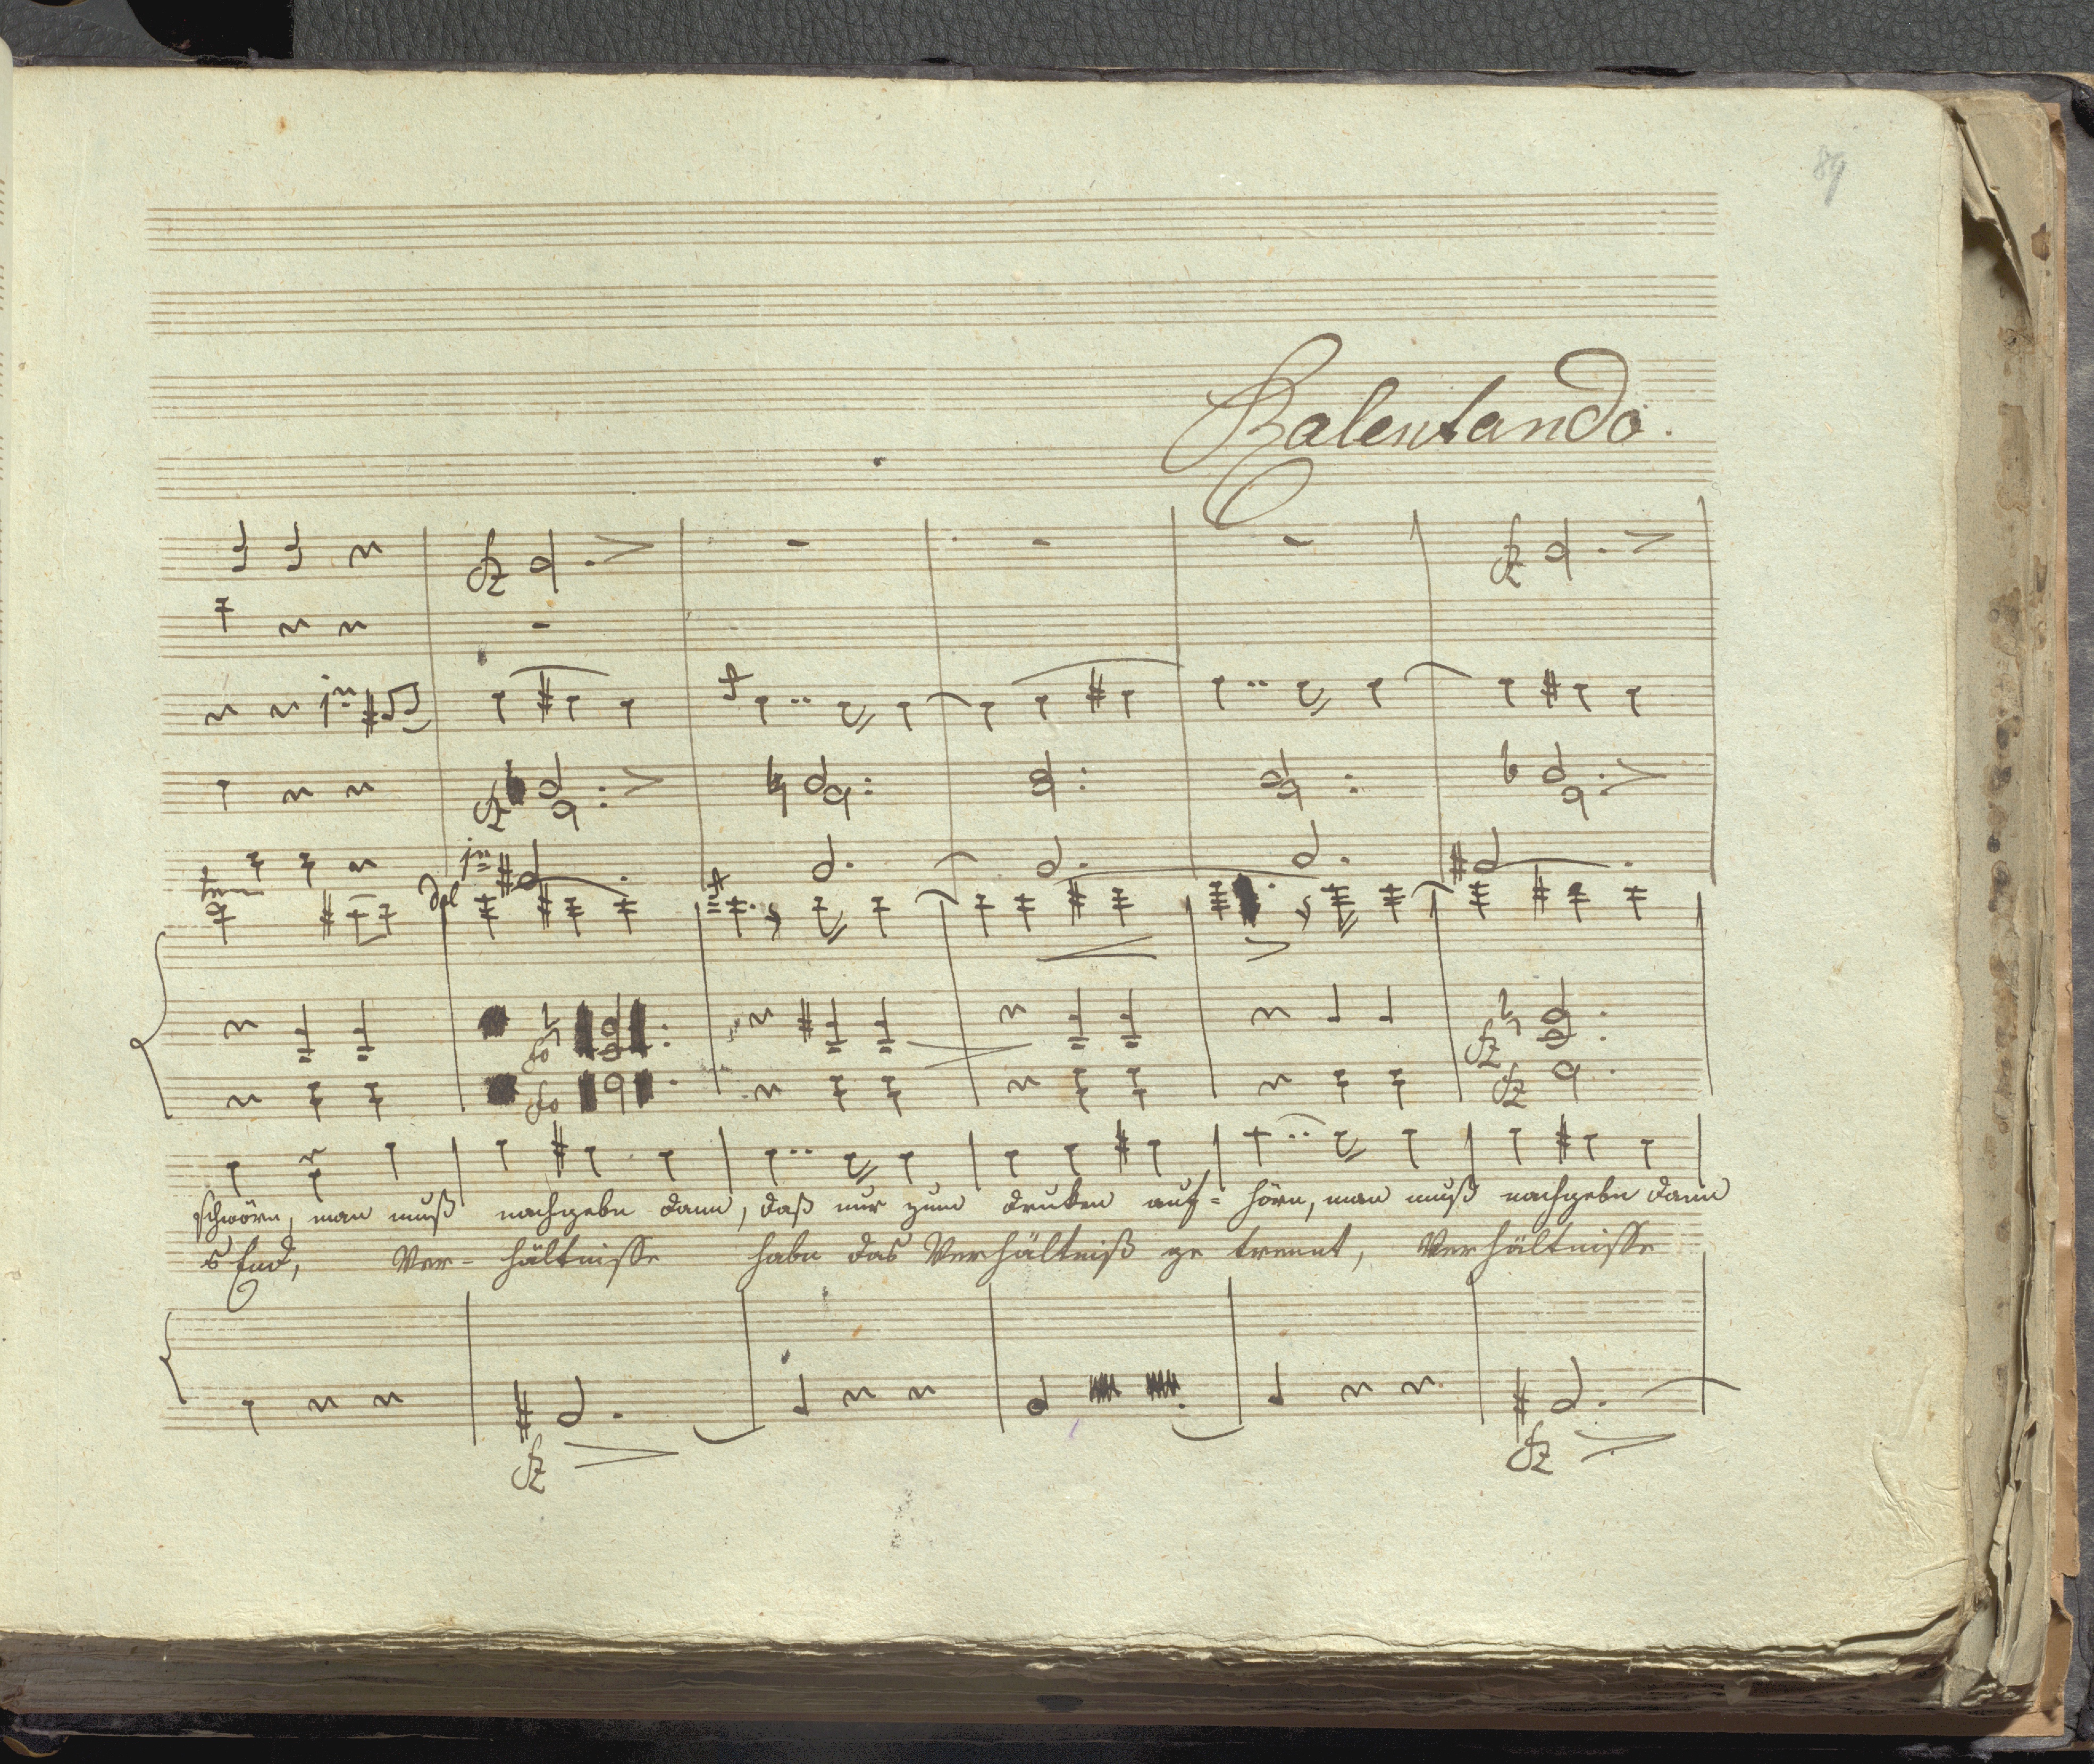 89
Ralentando.
fz
fz
fz
fz
schwörn, man muß nachgebn dann, daß nur zum druken auf= hörn, man muß nachgebn dann
s End, Ver- hältnisse habn das Verhältniß ge trennt, Verhältnisse
fz
fz